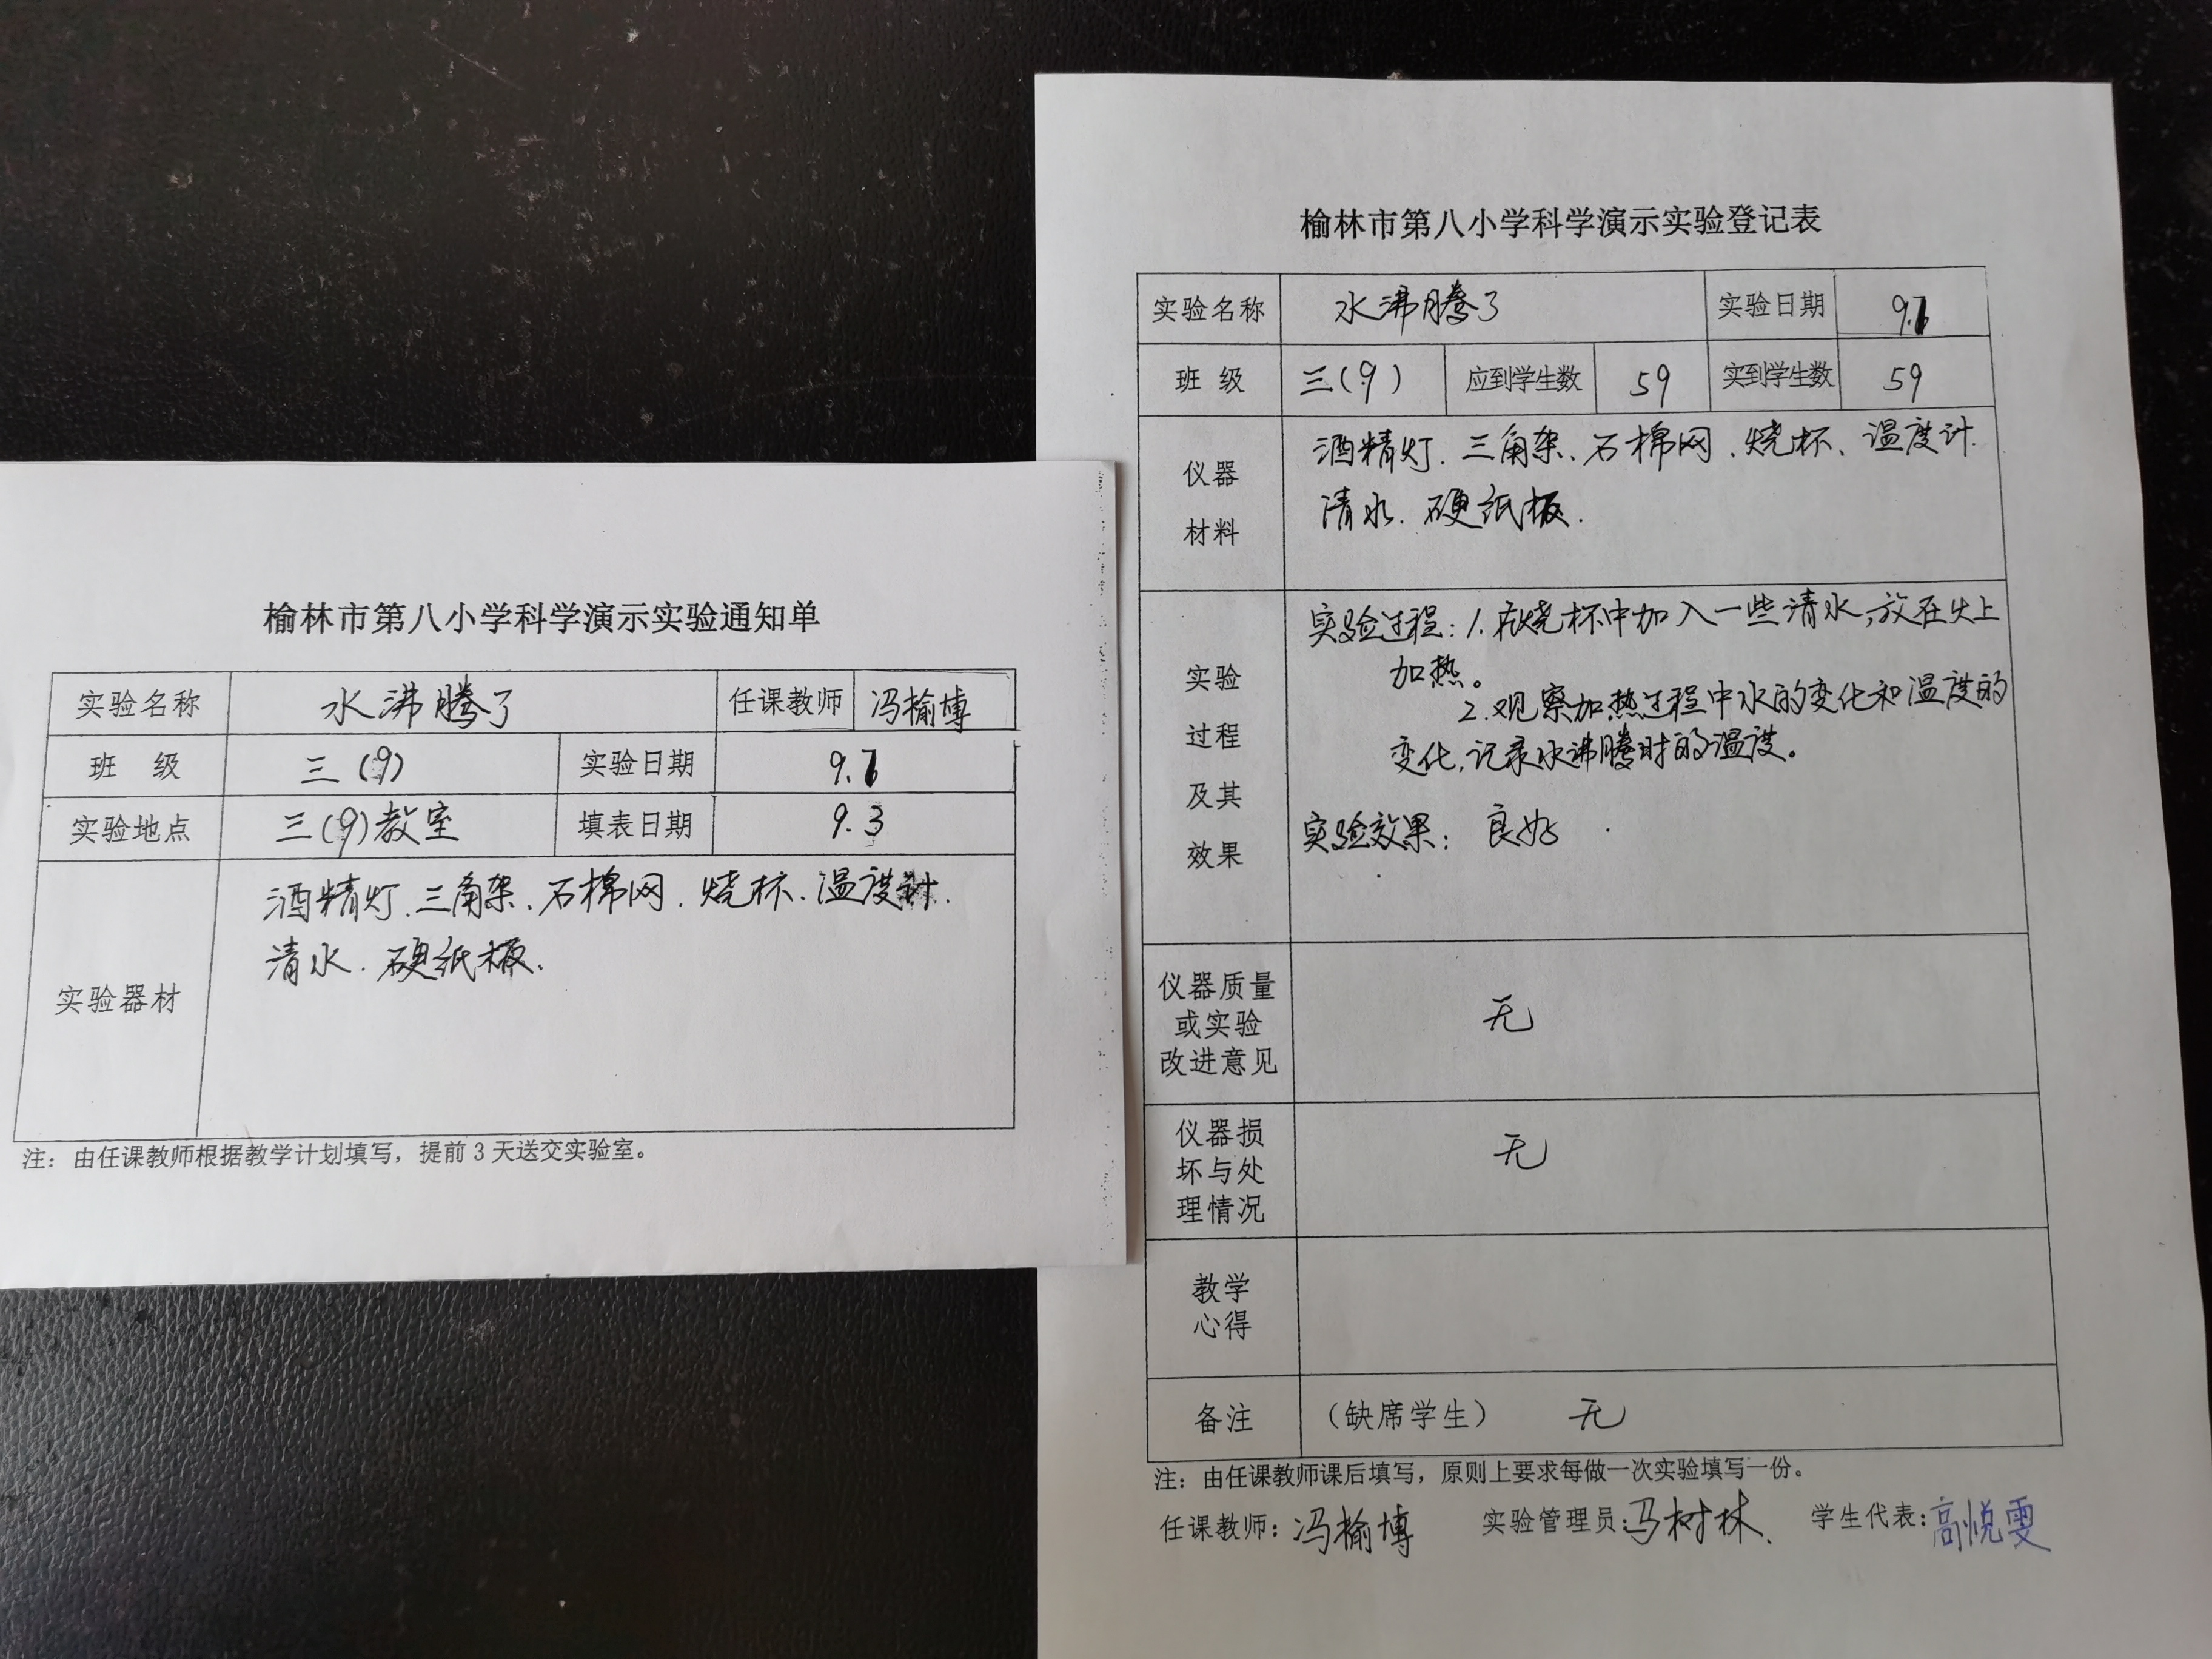 榆林市第八小学科学演示实验通知单
实验名称 水沸腾了 任课教师 冯榆博
班 级 三(9) 实验日期 9.7
实验地点 三(9)教室 填表日期 9.3
实验器材 酒精灯、三角架、石棉网、烧杯、温度计.
清水、硬纸板、
注：由任课教师根据教学计划填写，提前3天送交实验室。
榆林市第八小学科学演示实验登记表
实验名称 水沸腾了 实验日期 9.7
班 级 三(9) 应到学生数 59 实到学生数 59
仪器
材料
酒精灯、三角架、石棉网、烧杯、温度计.
清水、硬纸板.
实验
过程
及其
效果
实验过程：1.在烧杯中加入一些清水,放在火上
加热。
2.观察加热过程中水的变化和温度的
变化,记录水沸腾时的温度。
实验效果：良好
仪器质量
或实验
改进意见
无
仪器损
坏与处
理情况
无
教学
心得
备注 （缺席学生） 无
注：由任课教师课后填写，原则上要求每做一次实验填写一份。
任课教师：冯榆博 实验管理员：马树林、 学生代表：高悦雯